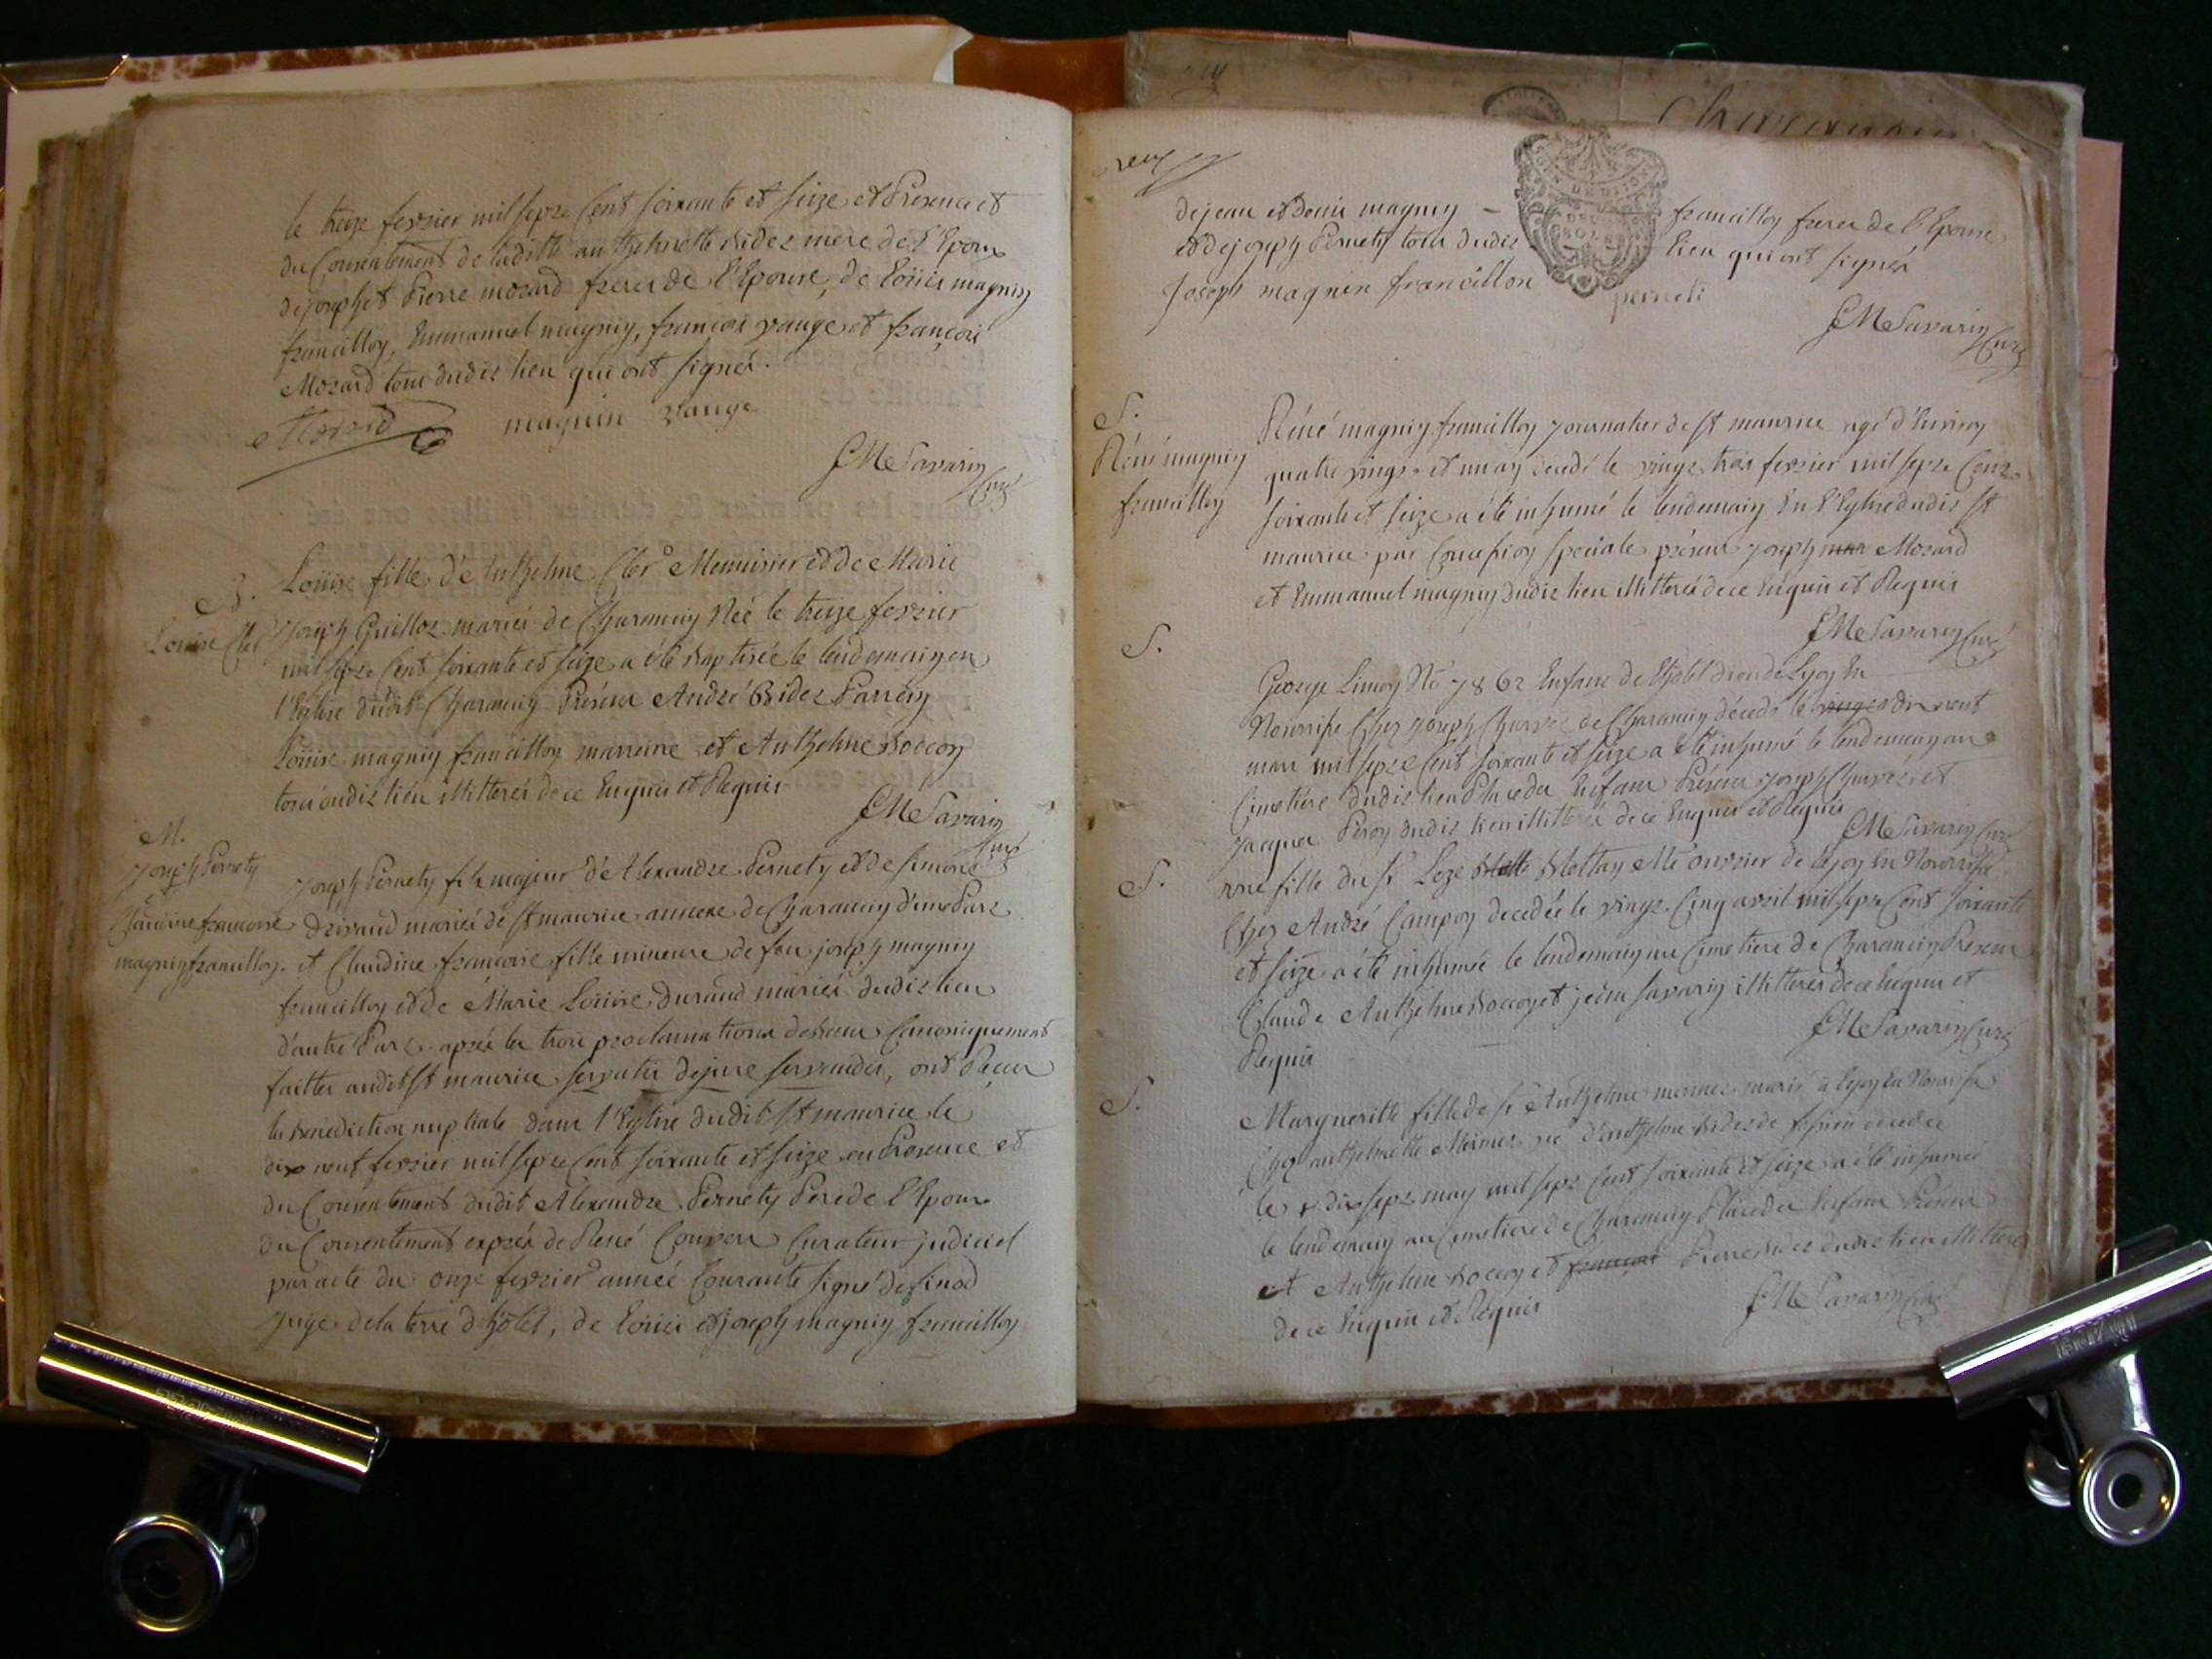 le treize fevrier mil sept Cent soixante et seize et Presence et
du Consentement de laditte anthelmette bidet mere de l'Epoux
de joseph et Pierre mozard freres de l'Epouse, de Loüis magnin
francillon, Emmanuel magnin, francois vange et françois
Mozard tous dudit lieu qui ont signés.
Mozard magnin vange
JM Savarin
Curé
B.
Loüise
Loüise fille d'Anthelme Menuisier et de Marie
joseph Guilloz mariés de Charancin Née le treize fevrier
mil sept Cent soixante et seize a été baptisée le lendemain en
l'Eglise dudit Charancin Présens André Bidet Parrein
Loüise magnin francillon marreine et Anthelme boccon
tous dudit lieu illitterés de ce Enquis et Requis
JM Savarin
Curé
M.
joseph Pernety
et
Claudine francoise
magnin francillon.
joseph Pernety fils majeur d'Alexandre Pernety et de simone
Drivaud mariés de st maurice annexe de Charancin d'une Part
et Claudine francoise fille mineure de feu joseph magnin
francillon et de Marie Loüise Durand mariés dudit lieu
d'autre Part après les trois proclamations de Canoniquement
faittes audit st maurice servatis de jure servandis, ont Reçeu
la benediction nuptiale dans l'Eglise dudit st maurice le
dix neuf fevrier mil sept Cent soixante et seize en Presence et
du Consentement dudit Alexandre Pernety Pere de l'Epoux
du Consentement exprés de René Curateur judiciel
par acte du onze fevrier année Courante signé
juge de la terre d'hôtel, de Loüis et joseph magnin francillon
Charancin
de jean et denis magnin - francillon freres de l'Epouse
et de joseph Pernety tous dudit lieu qui ont signés
Joseph magnin francillon perneti
JM Savarin
Curé
S.
Réné magnin
francillon
Réné magnin francillon journalier de st maurice agé d'Environ
quatre vingt et un an decedé le vingt trois fevrier mil sept Cent
soixante et seize a été inhumé le lendemain En l'Eglise dudit st
maurice par Concession speciale présens joseph mar Mozard
et Emmanuel magnin dudit lieu illitterés de ce Enquis et Requis
JM Savarin Curé
S.
George Limon No 7862 Enfant de l'hôtel dieu de Lyon En
Nourrisse Chez joseph de Charancin décedé le vingt dix neuf
mars mil sept Cent soixante et seize a été inhumé le lendemain au
Cimetiere dudit lieu Place des Enfans Présens joseph et
jacques Peron dudit lieu illitterés de ce Enquis et Requis
JM Savarin Curé
S.
une fille du sr Mottay Me ouvrier de Lyon En Nourrisse
Chez André Campon decedée le vingt Cinq avril mil sept Cent soixante
et seize a été inhumée le lendemain au Cimetiere de Charancin Présens
Claude Anthelme boccon et jean savarin illitterés de ce Enquis et
Requis
JM Savarin Curé
S.
Margueritte fille de sr Anthelme mermet marié a Lyon En Nourrisse
Chez anthelmette Mermet d'anthelme bidet de decedée
le dix sept may mil sept Cent soixante et seize a été inhumée
le lendemain au Cimetiere de Charancin Place des Enfans Présens
et Anthelme boccon et françois Pierre bidet dudit lieu illitterés
de ce Enquis et Requis
JM Savarin Curé